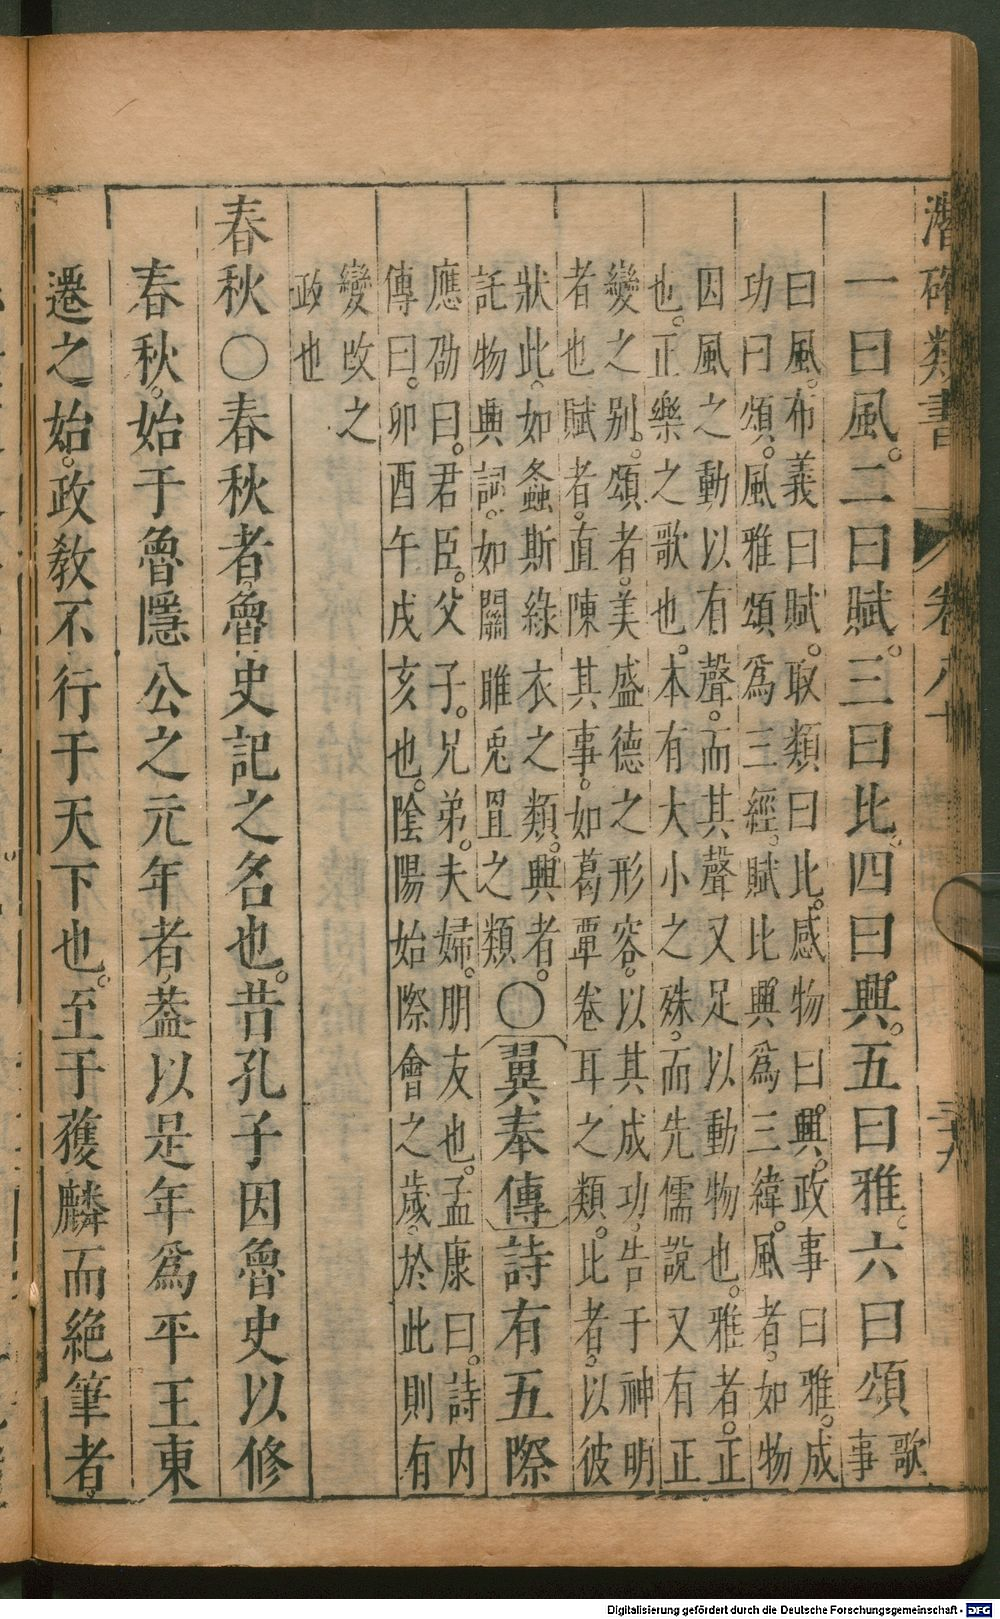 潛確類書 卷八十 三十九
一曰風。二曰賦。三曰比。四曰興。五曰雅。六曰頌歌事
曰風。布義曰賦。取類曰比。感物曰興。政事曰雅。成
功曰頌。風雅頌爲三經。賦比興爲三緯。風者。如物
因風之動以有聲。而其聲又足以動物也。雅者。正
也。正樂之歌也。本有大小之殊。而先儒說又有正
變之别。頌者。美盛德之形容。以其成功。告于神明
者也賦者。直陳其事。如葛覃卷耳之類。比者。以彼
狀此。如螽斯綠衣之類。興者。
託物興詞。如關雎兎罝之類
〇翼奉傳詩有五際
應劭曰。君臣。父子。兄弟。夫婦。朋友也。孟康曰。詩内
傳曰。卯酉午戌亥也。陰陽始際會之歲。於此則有
變改之
政也
春秋〇春秋者。魯史記之名也。昔孔子因魯史以修
春秋。始于魯隱公之元年者。葢以是年爲平王東
遷之始。政教不行于天下也。至于獲麟而絕筆者。
Digitalisierung gefördert durch die Deutsche Forschungsgemeinschaft - DFG